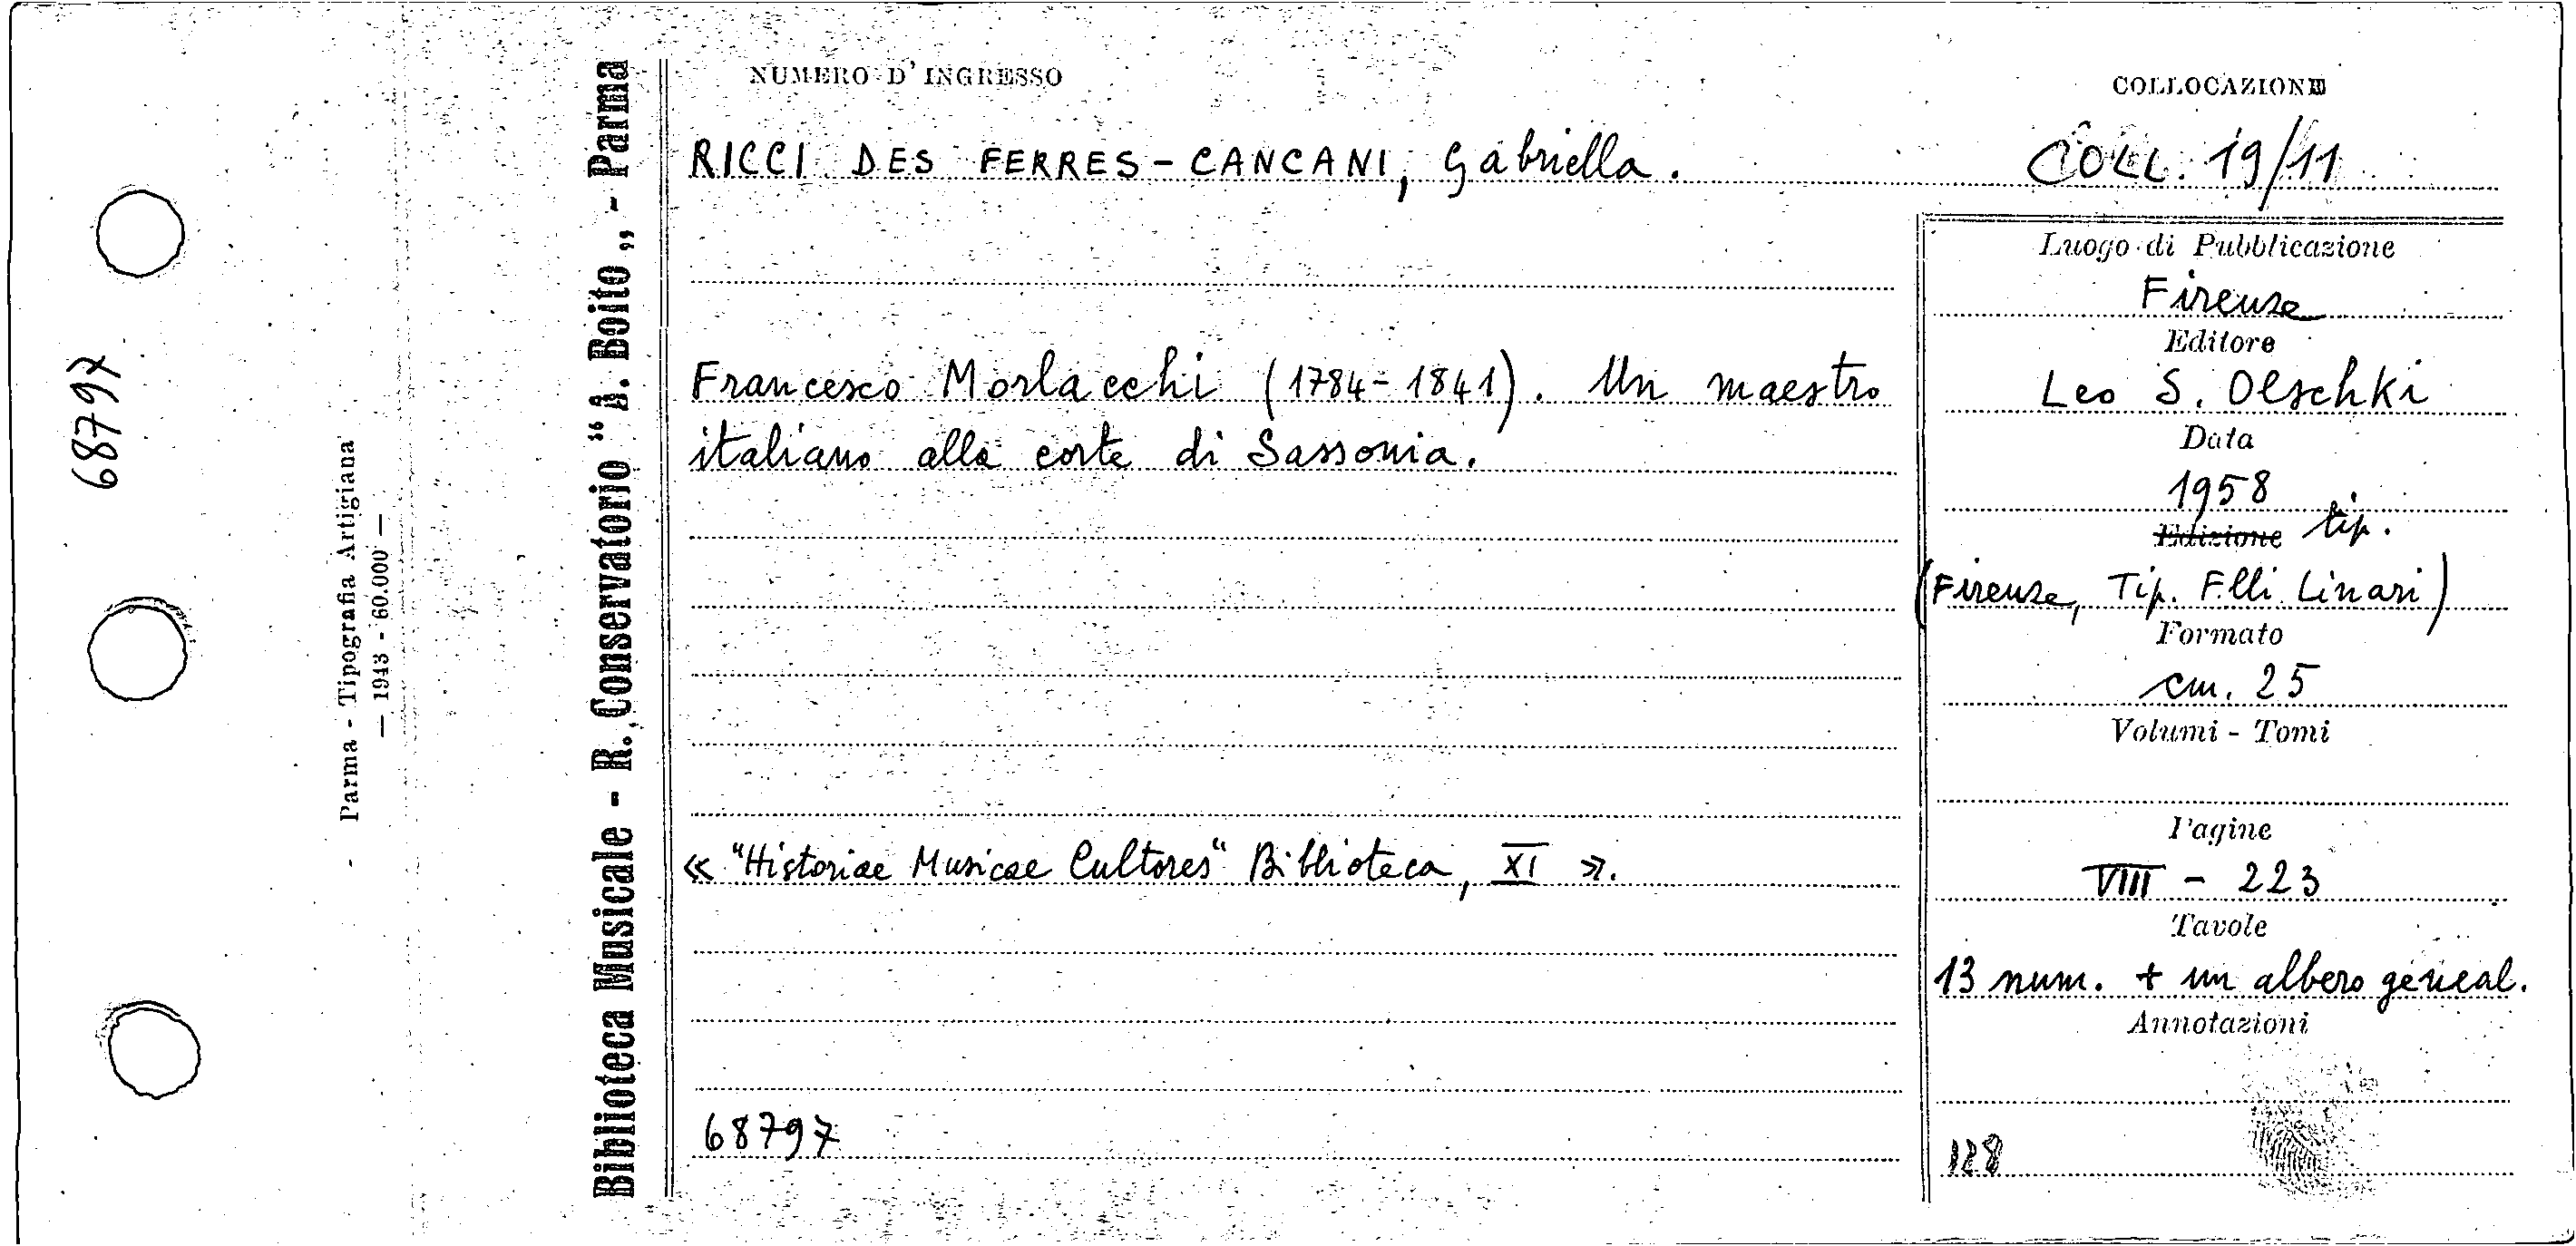 68797
Parma - Tipografia Artigiana
— 1943 - 60.000 —
Biblioteca Musicale - R. Conservatorio “A. Boito„ - Parma
NUMERO D'INGRESSO
COLLOCAZIONE
RICCI DES FERRES-CANCANI, Gabriella.
COLL. 19/11
Francesco Morlacchi (1784-1841). Un maestro
italiano alla corte di Sassonia.
« "Historiae Musicae Cultores" Biblioteca, XI ».
68797
Luogo di Pubblicazione
Firenze
Editore
Leo S. Olschki
Data
1958
Edizione tip.
(Firenze, Tip. F.lli Linari)
Formato
cm. 25
Volumi - Tomi
Pagine
VIII - 223
Tavole
13 num. + un albero geneal.
Annotazioni
128